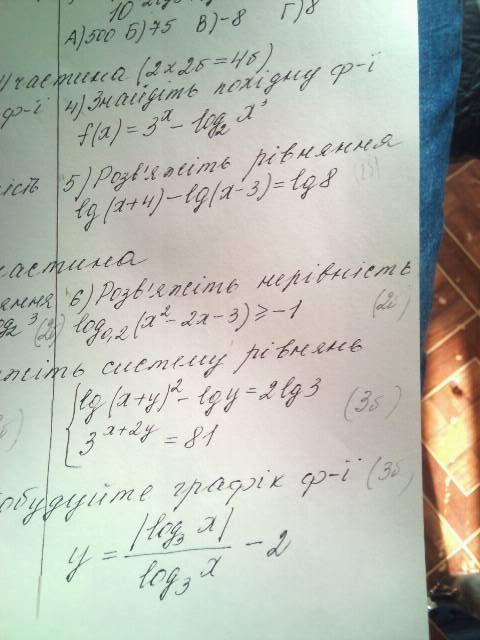 А) 500 Б) 75 В) -8 Г) 8
частина (2х2б=4б)
ф-ї 4) Знайдіть похідну ф-ї
f(x) = 3^x - log_2 x^3
5) Розв'яжіть рівняння
lg(x+4) - lg(x-3) = lg 8
частина
6) Розв'яжіть нерівність
(2б) log_{0,2}(x^2 - 2x - 3) ≥ -1 (2б)
систему рівнянь
{ lg(x+y)^2 - lg y = 2lg3
3^{x+2y} = 81 (3б)
обудуйте графік ф-ї (3б)
y = |log_3 x| / log_3 x - 2